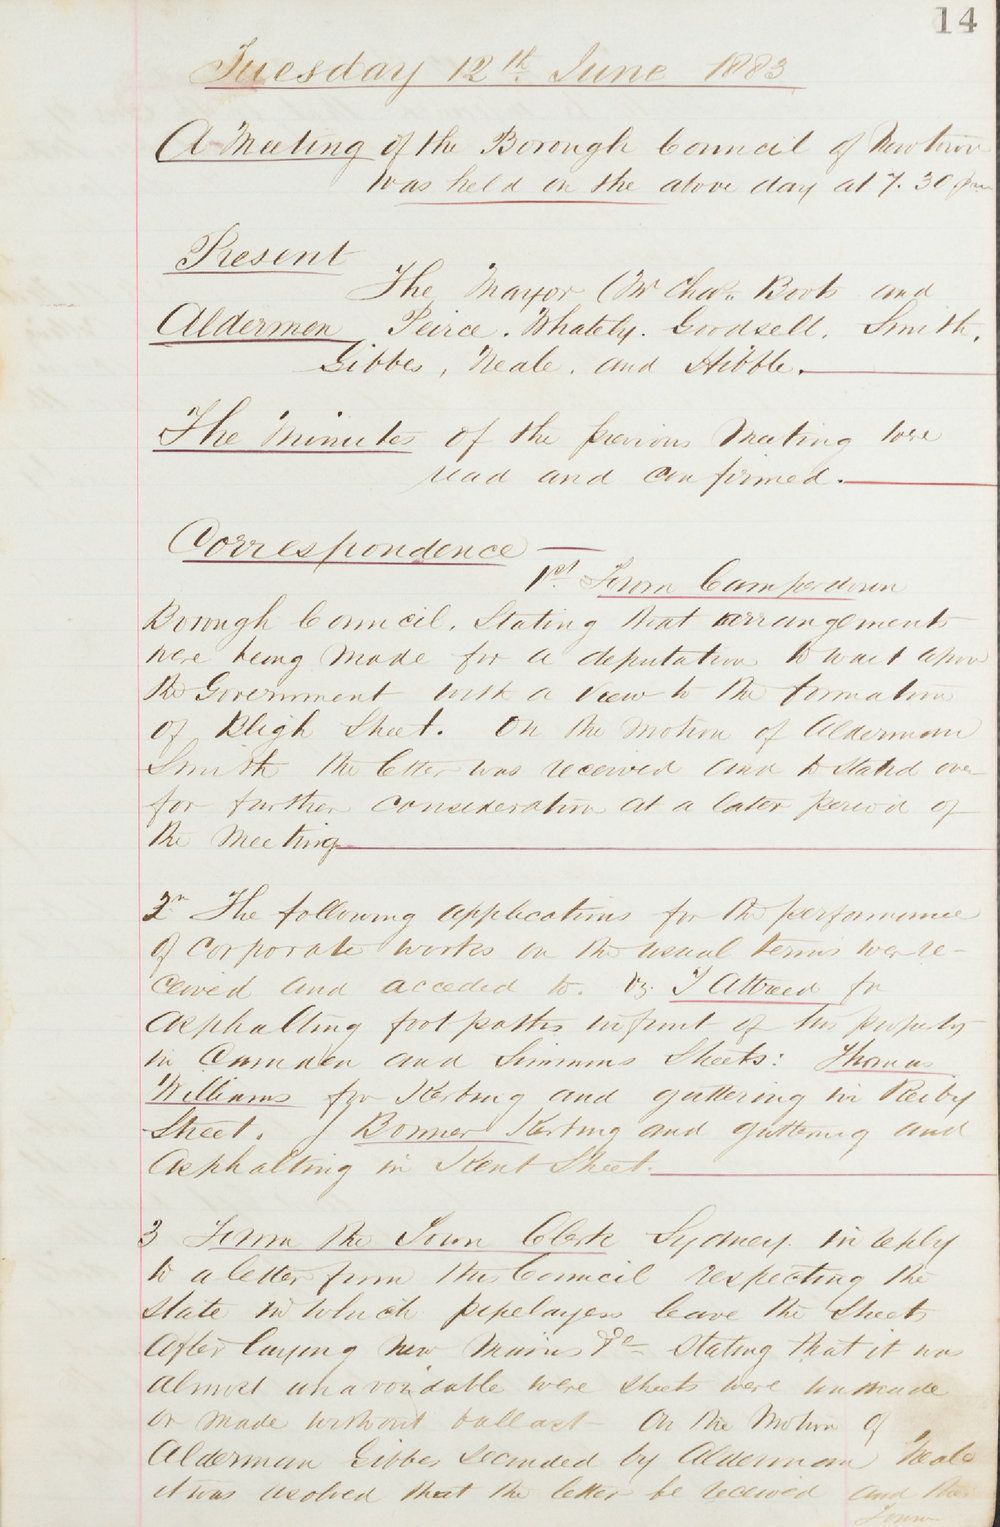 14
Tuesday 12th. June 1883
A Meeting of the Borough Council of Newtown
was held on the above day at 7.30 pm
Present
The Mayor (Mr Chas. Boots and
Aldermen Peirce. Whately. Goodsell. Smith,
Gibbes, Neale, and Hibble.
The Minutes of the previous Meeting were
read and confirmed.
Correspondence
1st. From Camperdown
Borough Council. Stating that arrangements
were being made for a deputation to wait upon
the Government with a view to the formation
of Bligh Street. On the motion of Alderman
Smith the letter was received and to stand over
for further consideration at a later period of
the Meeting
2n The following applications for the performance
of corporate works on the usual terms were re-
ceived and acceded to. Vz. J Attwed for
Asphalting footpaths in front of his property
in Camden and Simmons Streets: Thomas
Williams for Kerbing and guttering in Reiby
Street. J Bonner Kerbing and guttering and
Asphalting in Kent Street.
3 From the Town Clerk Sydney. in reply
to a letter from this Council respecting the
state in which pipelayers leave the Streets
After laying new Mains &c stating that it was
almost unavoidable were streets were unmade
or made without ballast On the Motion of
Alderman Gibbes seconded by Alderman Neale
it was resolved that the letter be received and the
Town